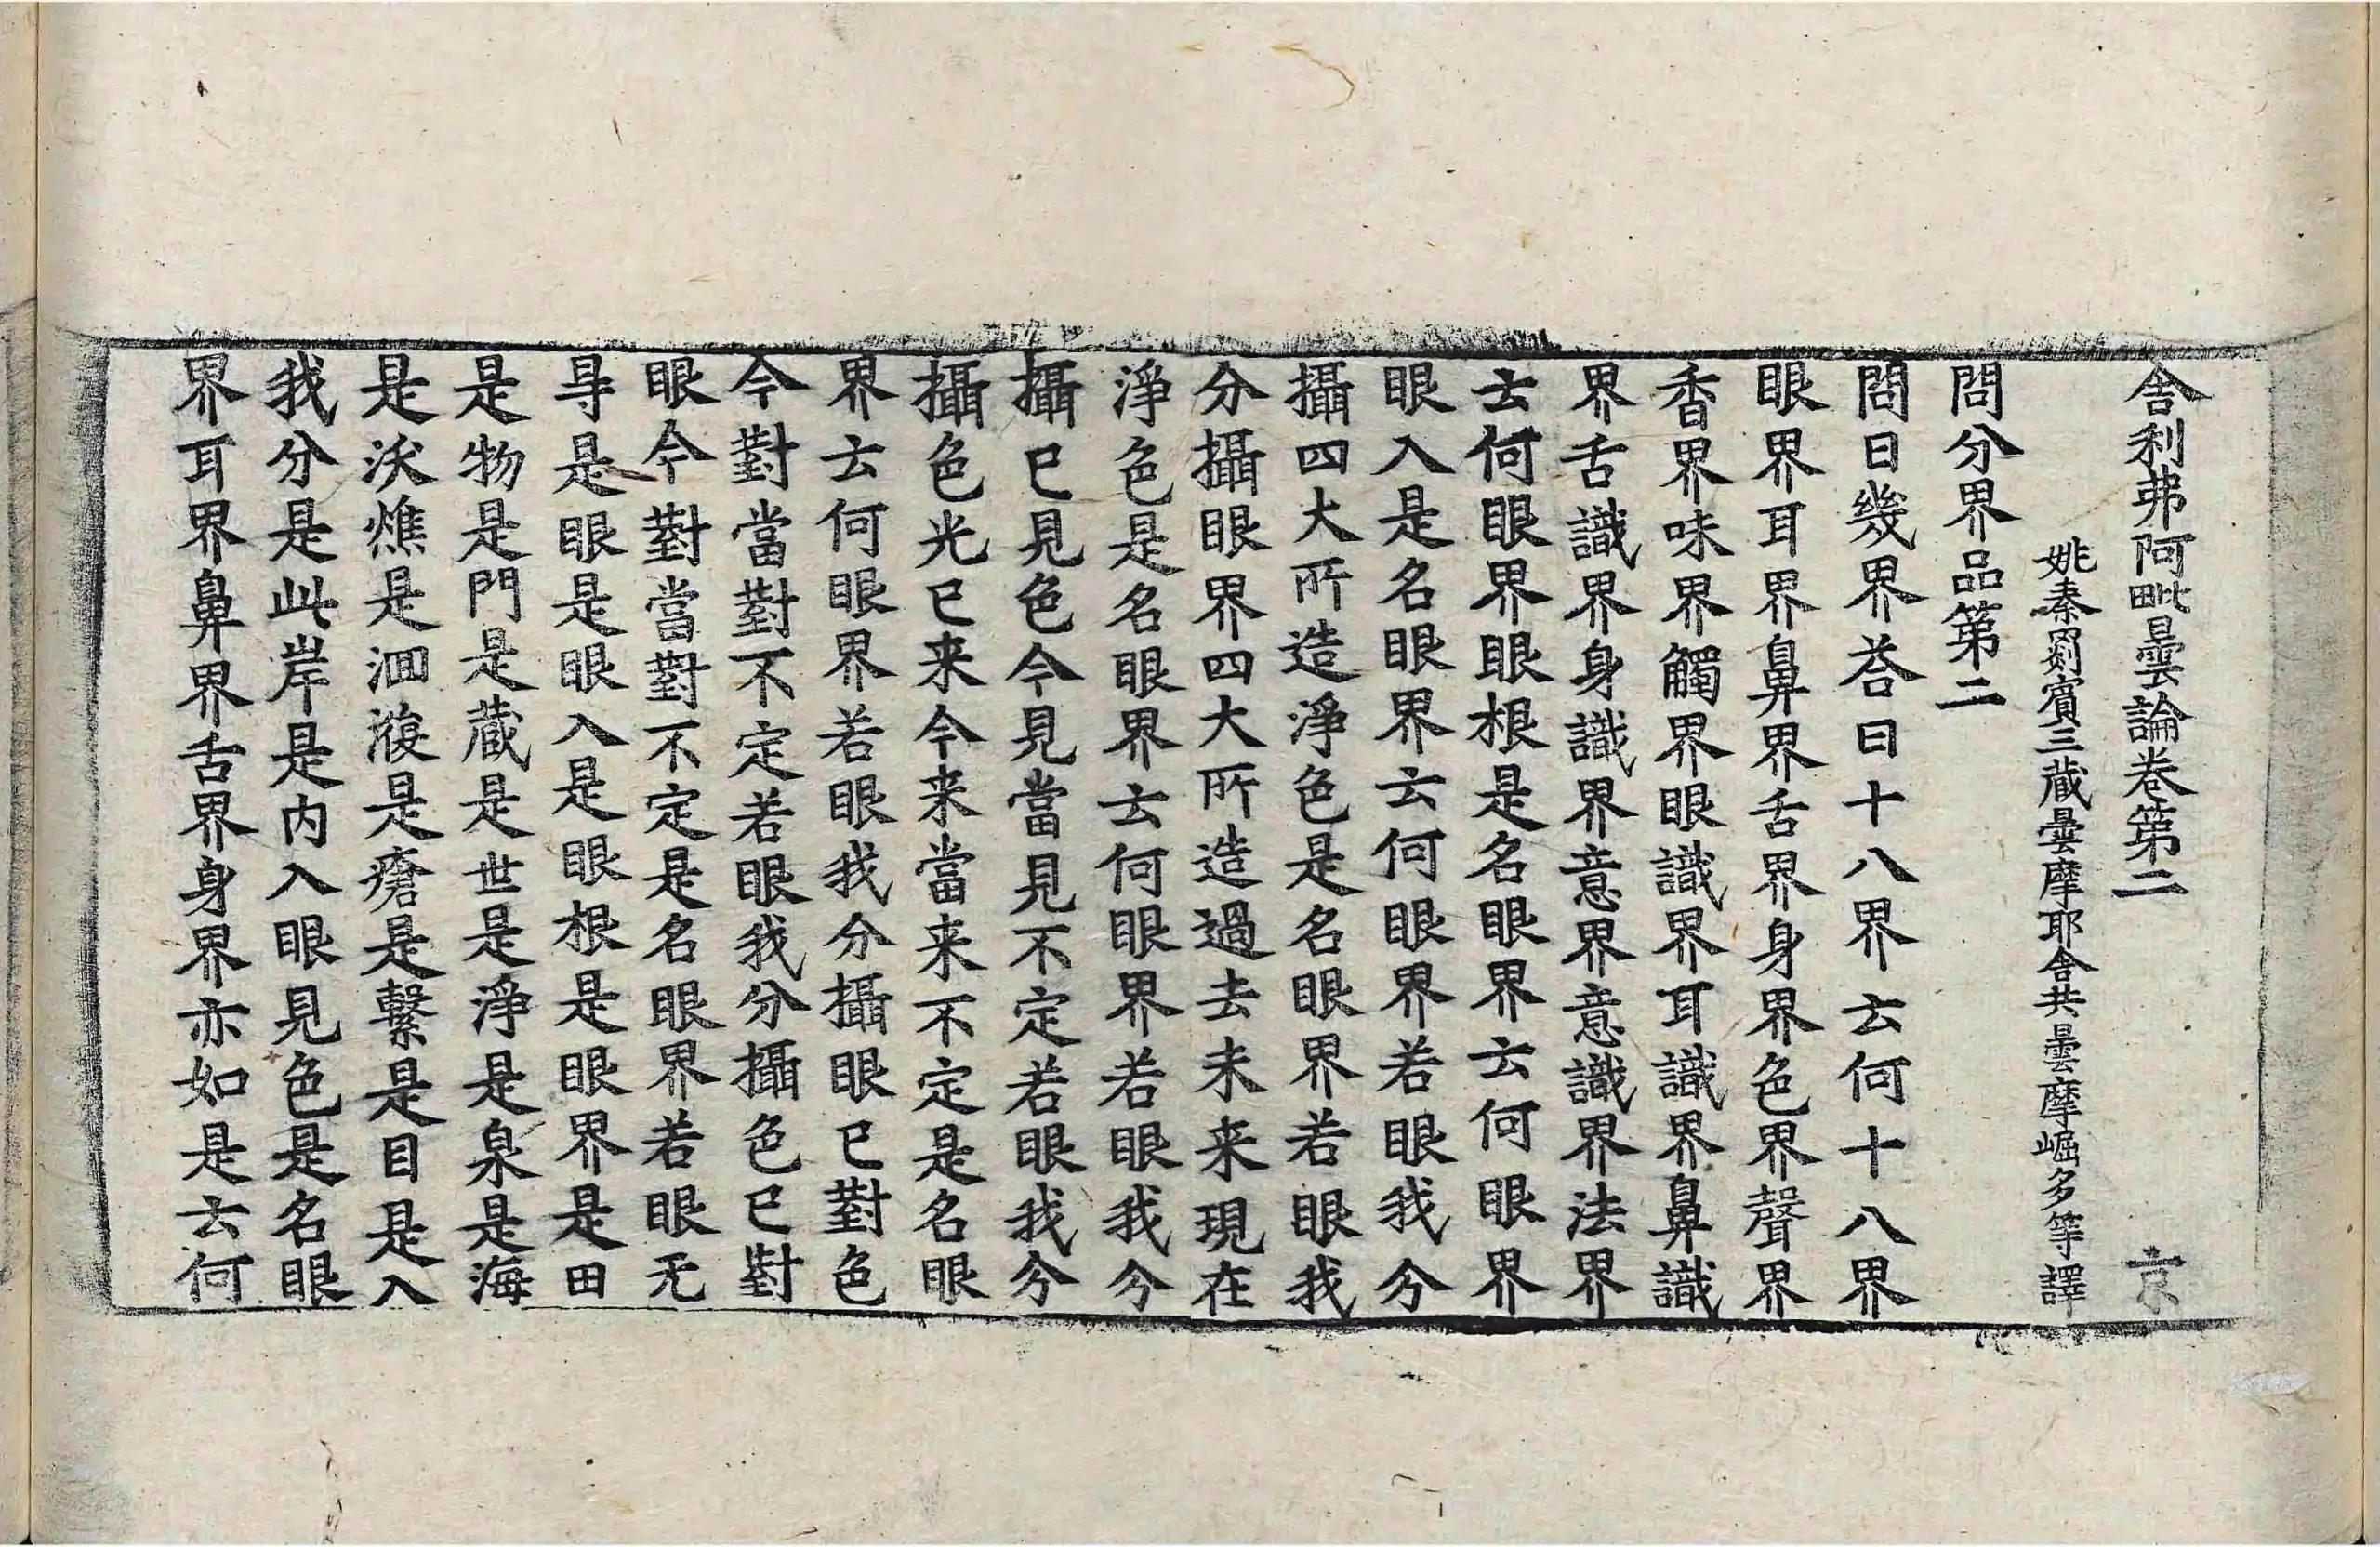 舎利弗阿毗曇論卷第二 京
姚秦罽賓三藏曇摩耶舍共曇摩崛多等譯
問分界品第二
問曰幾界荅曰十八界云何十八界
眼界耳界鼻界舌界身界色界聲界
香界味界觸界眼識界耳識界鼻識
界舌識界身識界意界意識界法界
云何眼界眼根是名眼界云何眼界
眼入是名眼界云何眼界若眼我分
攝四大所造淨色是名眼界若眼我
分攝眼界四大所造過去未来現在
淨色是名眼界云何眼界若眼我分
攝已見色今見當見不定若眼我分
攝色光已来今来當来不定是名眼
界云何眼界若眼我分攝眼已對色
今對當對不定若眼我分攝色已對
眼今對當對不定是名眼界若眼无
㝵是眼是眼入是眼根是眼界是田
是物是門是蔵是世是淨是泉是海
是沃燋是洄澓是瘡是繫是目是入
我分是此岸是内入眼見色是名眼
界耳界鼻界舌界身界亦如是云何